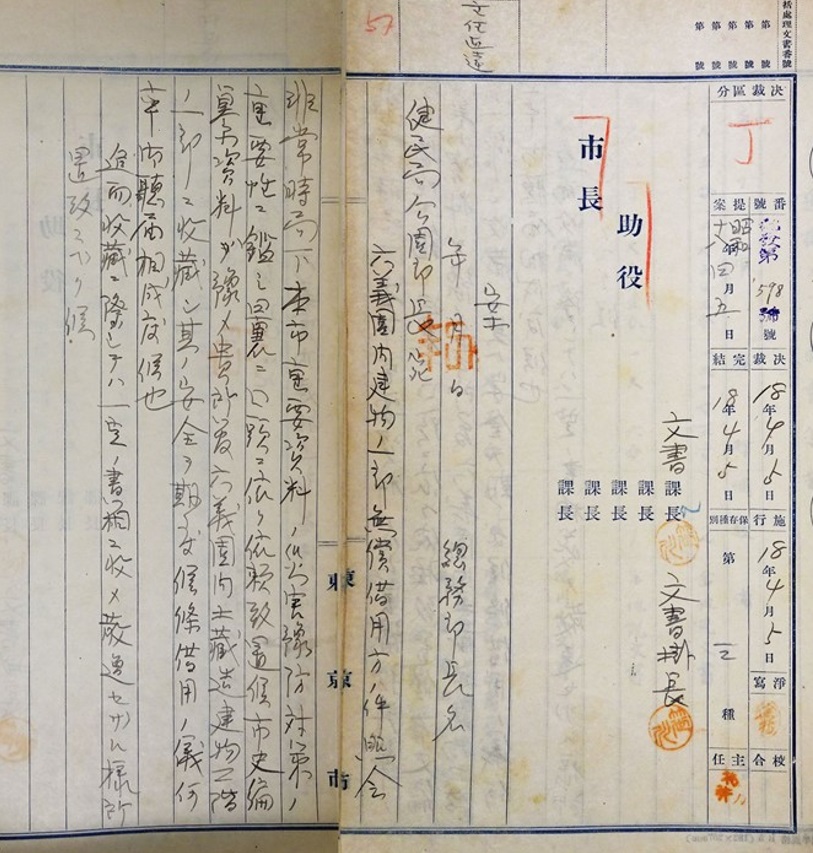 括處理文書番號
第 號
第 號
第 號
第 號
第 號
決裁區分
丁
番號 提案
第598號
昭和十八年四月五日
決裁 18年4月5日
完結 18年4月5日
施行 18年4月5日
保存種別 第三種
淨寫
校合
主任
文書課長
文書掛長
課長
課長
課長
課長
助役
市長
案
年 月 日
總務部長名
健民局公園部長宛
六義園内建物ノ一部無償借用方ノ件照会
非常時局下本市重要資料ノ災害豫防対策ノ
重要性ニ鑑ミ曩ニ口頭ニ依リ依頼致置候市史編
纂用資料ヲ豫メ貴所管六義園内土藏造建物二階
ノ一部ニ收藏シ其ノ安全ヲ期シ度候條借用ノ儀何
卒御聽届相成度候也
追而收藏ニ際シテハ一定ノ書箱ニ收メ散逸セザル樣所
置致ス可ク候
東京市
57